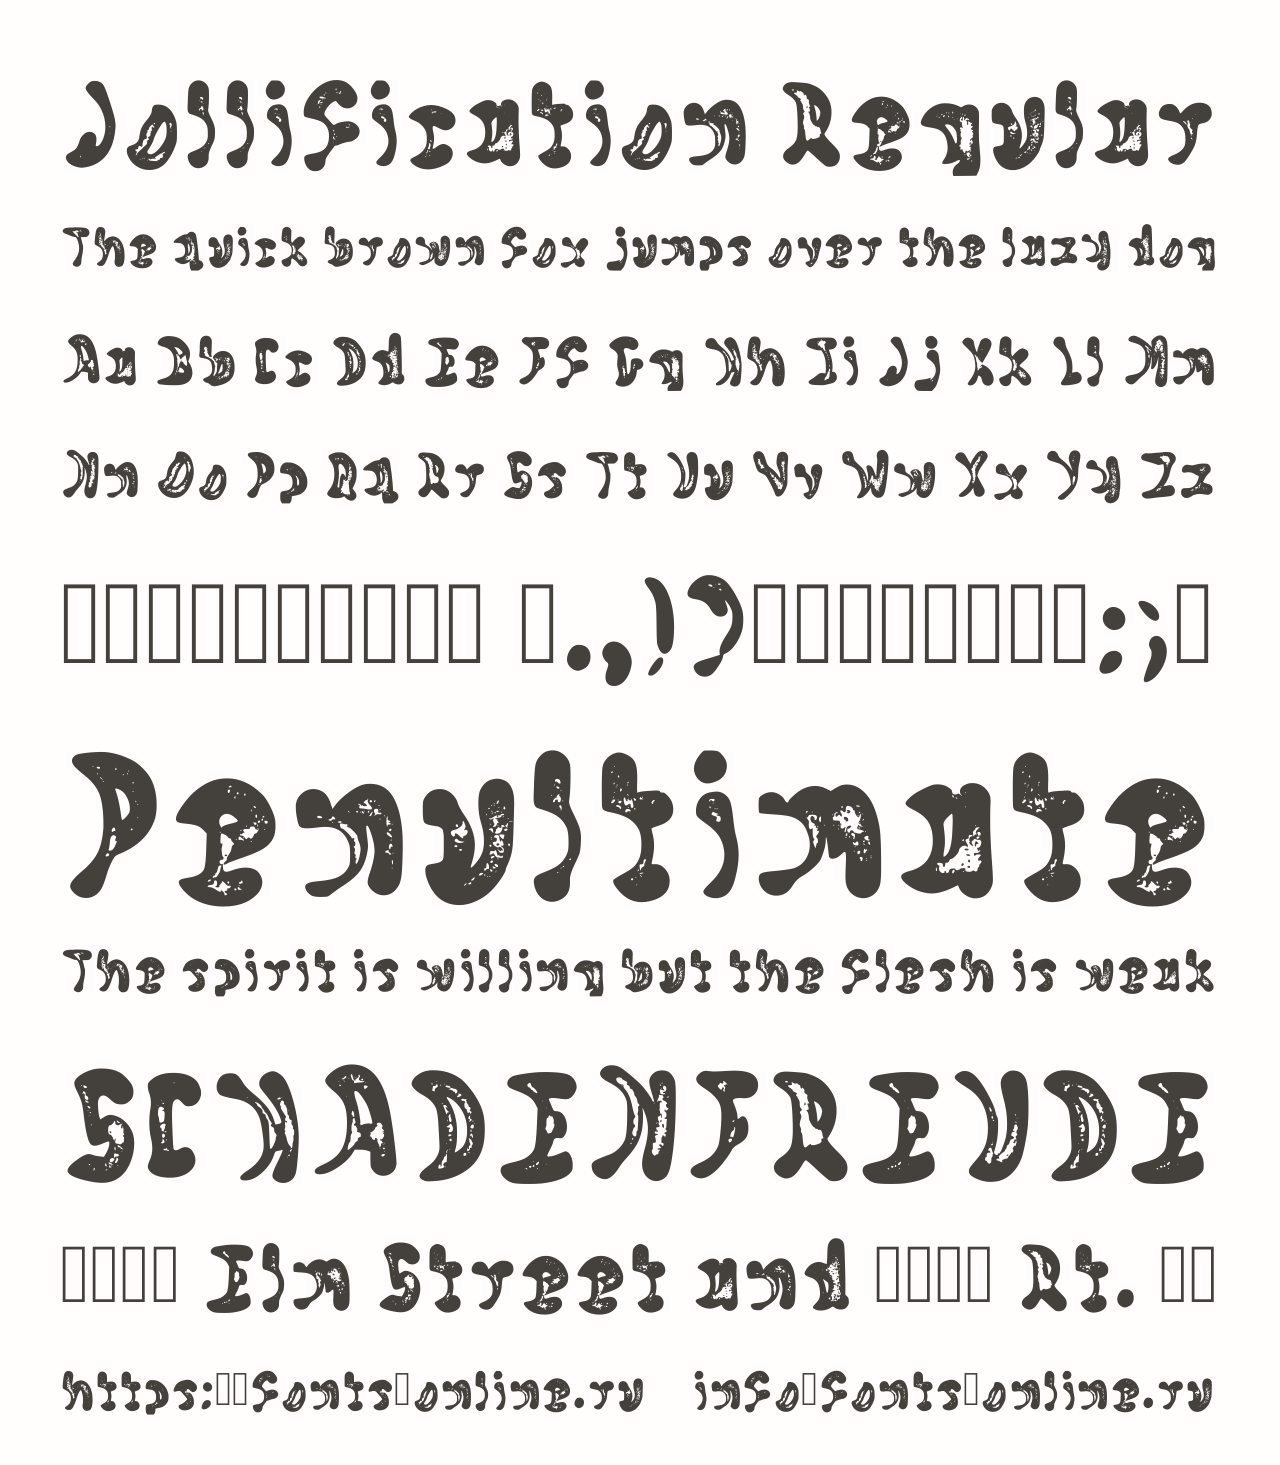 Jollification Regular
The quick brown fox jumps over the lazy dog
Aa Bb Cc Dd Ee Ff Gg Hh Ii Jj Kk Ll Mm
Nn Oo Pp Qq Rr Ss Tt Uu Vv Ww Xx Yy Zz
.,!?:;
Penultimate
The spirit is willing but the flesh is weak
SCHADENFREUDE
Elm Street and Rt.
https:fontsonline.ru infofontsonline.ru